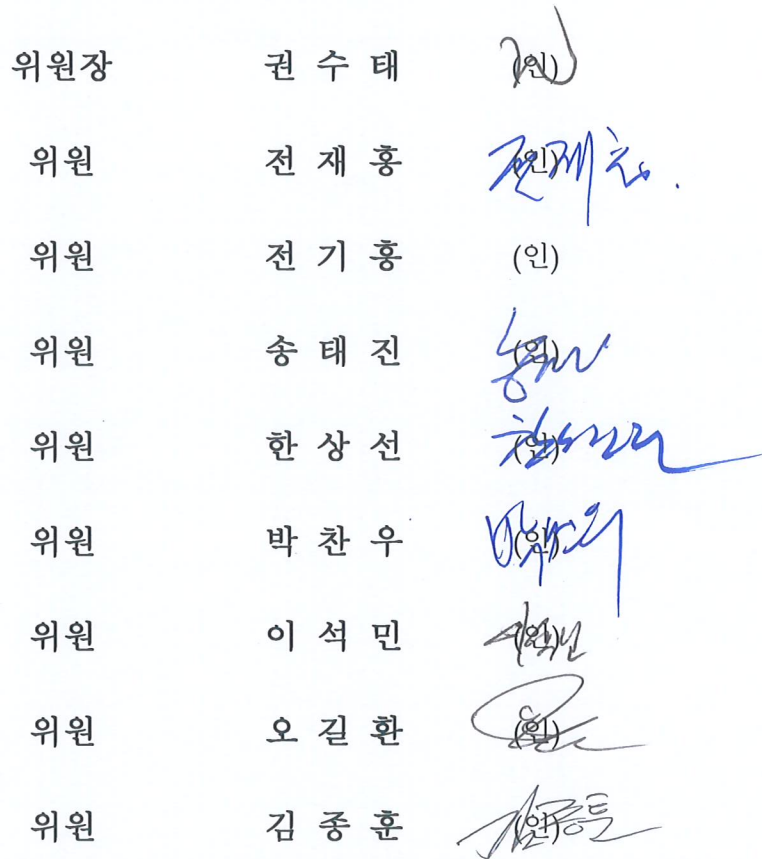 위원장 권 수 태 (인)
위원 전 재 홍 (인) 전재홍
위원 전 기 홍 (인)
위원 송 태 진 (인)
위원 한 상 선 (인)
위원 박 찬 우 (인)
위원 이 석 민 (인)
위원 오 길 환 (인)
위원 김 종 훈 (인)